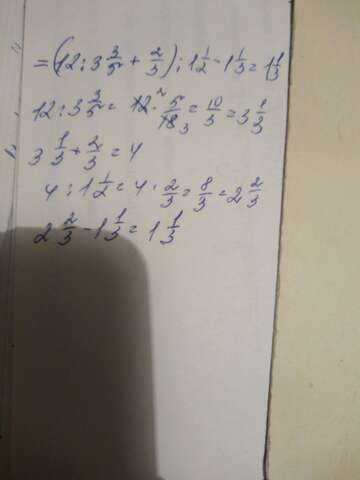 = (12 : 3 3/5 + 2/3) : 1 1/2 - 1 1/3 = 1 1/3
12 : 3 3/5 = 12 2 · 5/18 3 = 10/3 = 3 1/3
3 1/3 + 2/3 = 4
4 : 1 1/2 = 4 · 2/3 = 8/3 = 2 2/3
2 2/3 - 1 1/3 = 1 1/3